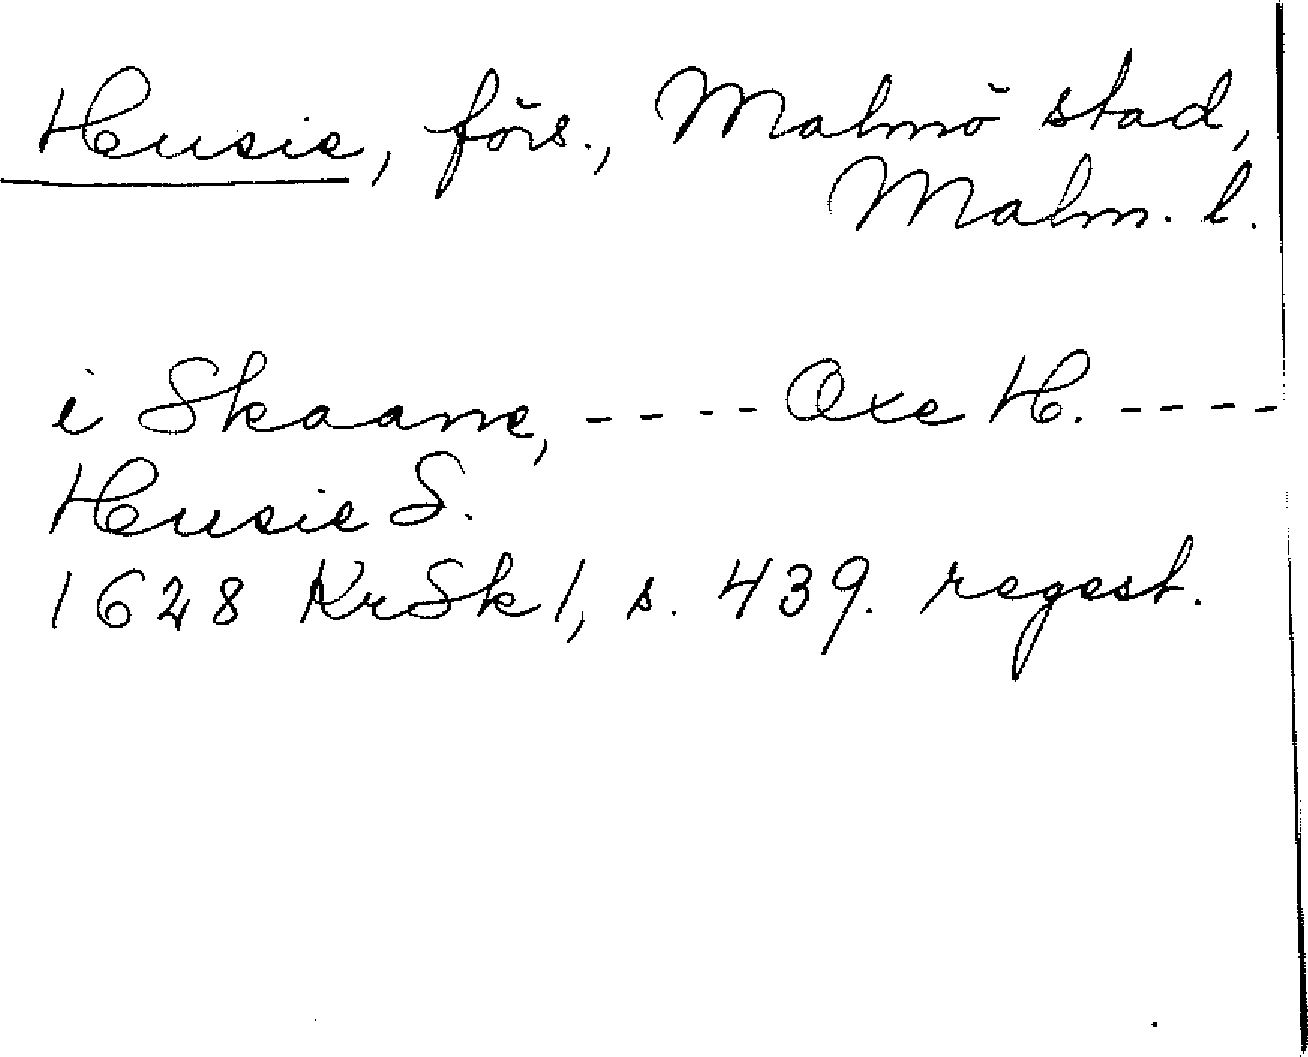 Husie, förs., Malmö stad,
Malm. l.
i Skaane, ---- Oxe H. ----
Husie S.
1628 KrSk 1, s. 439. regest.